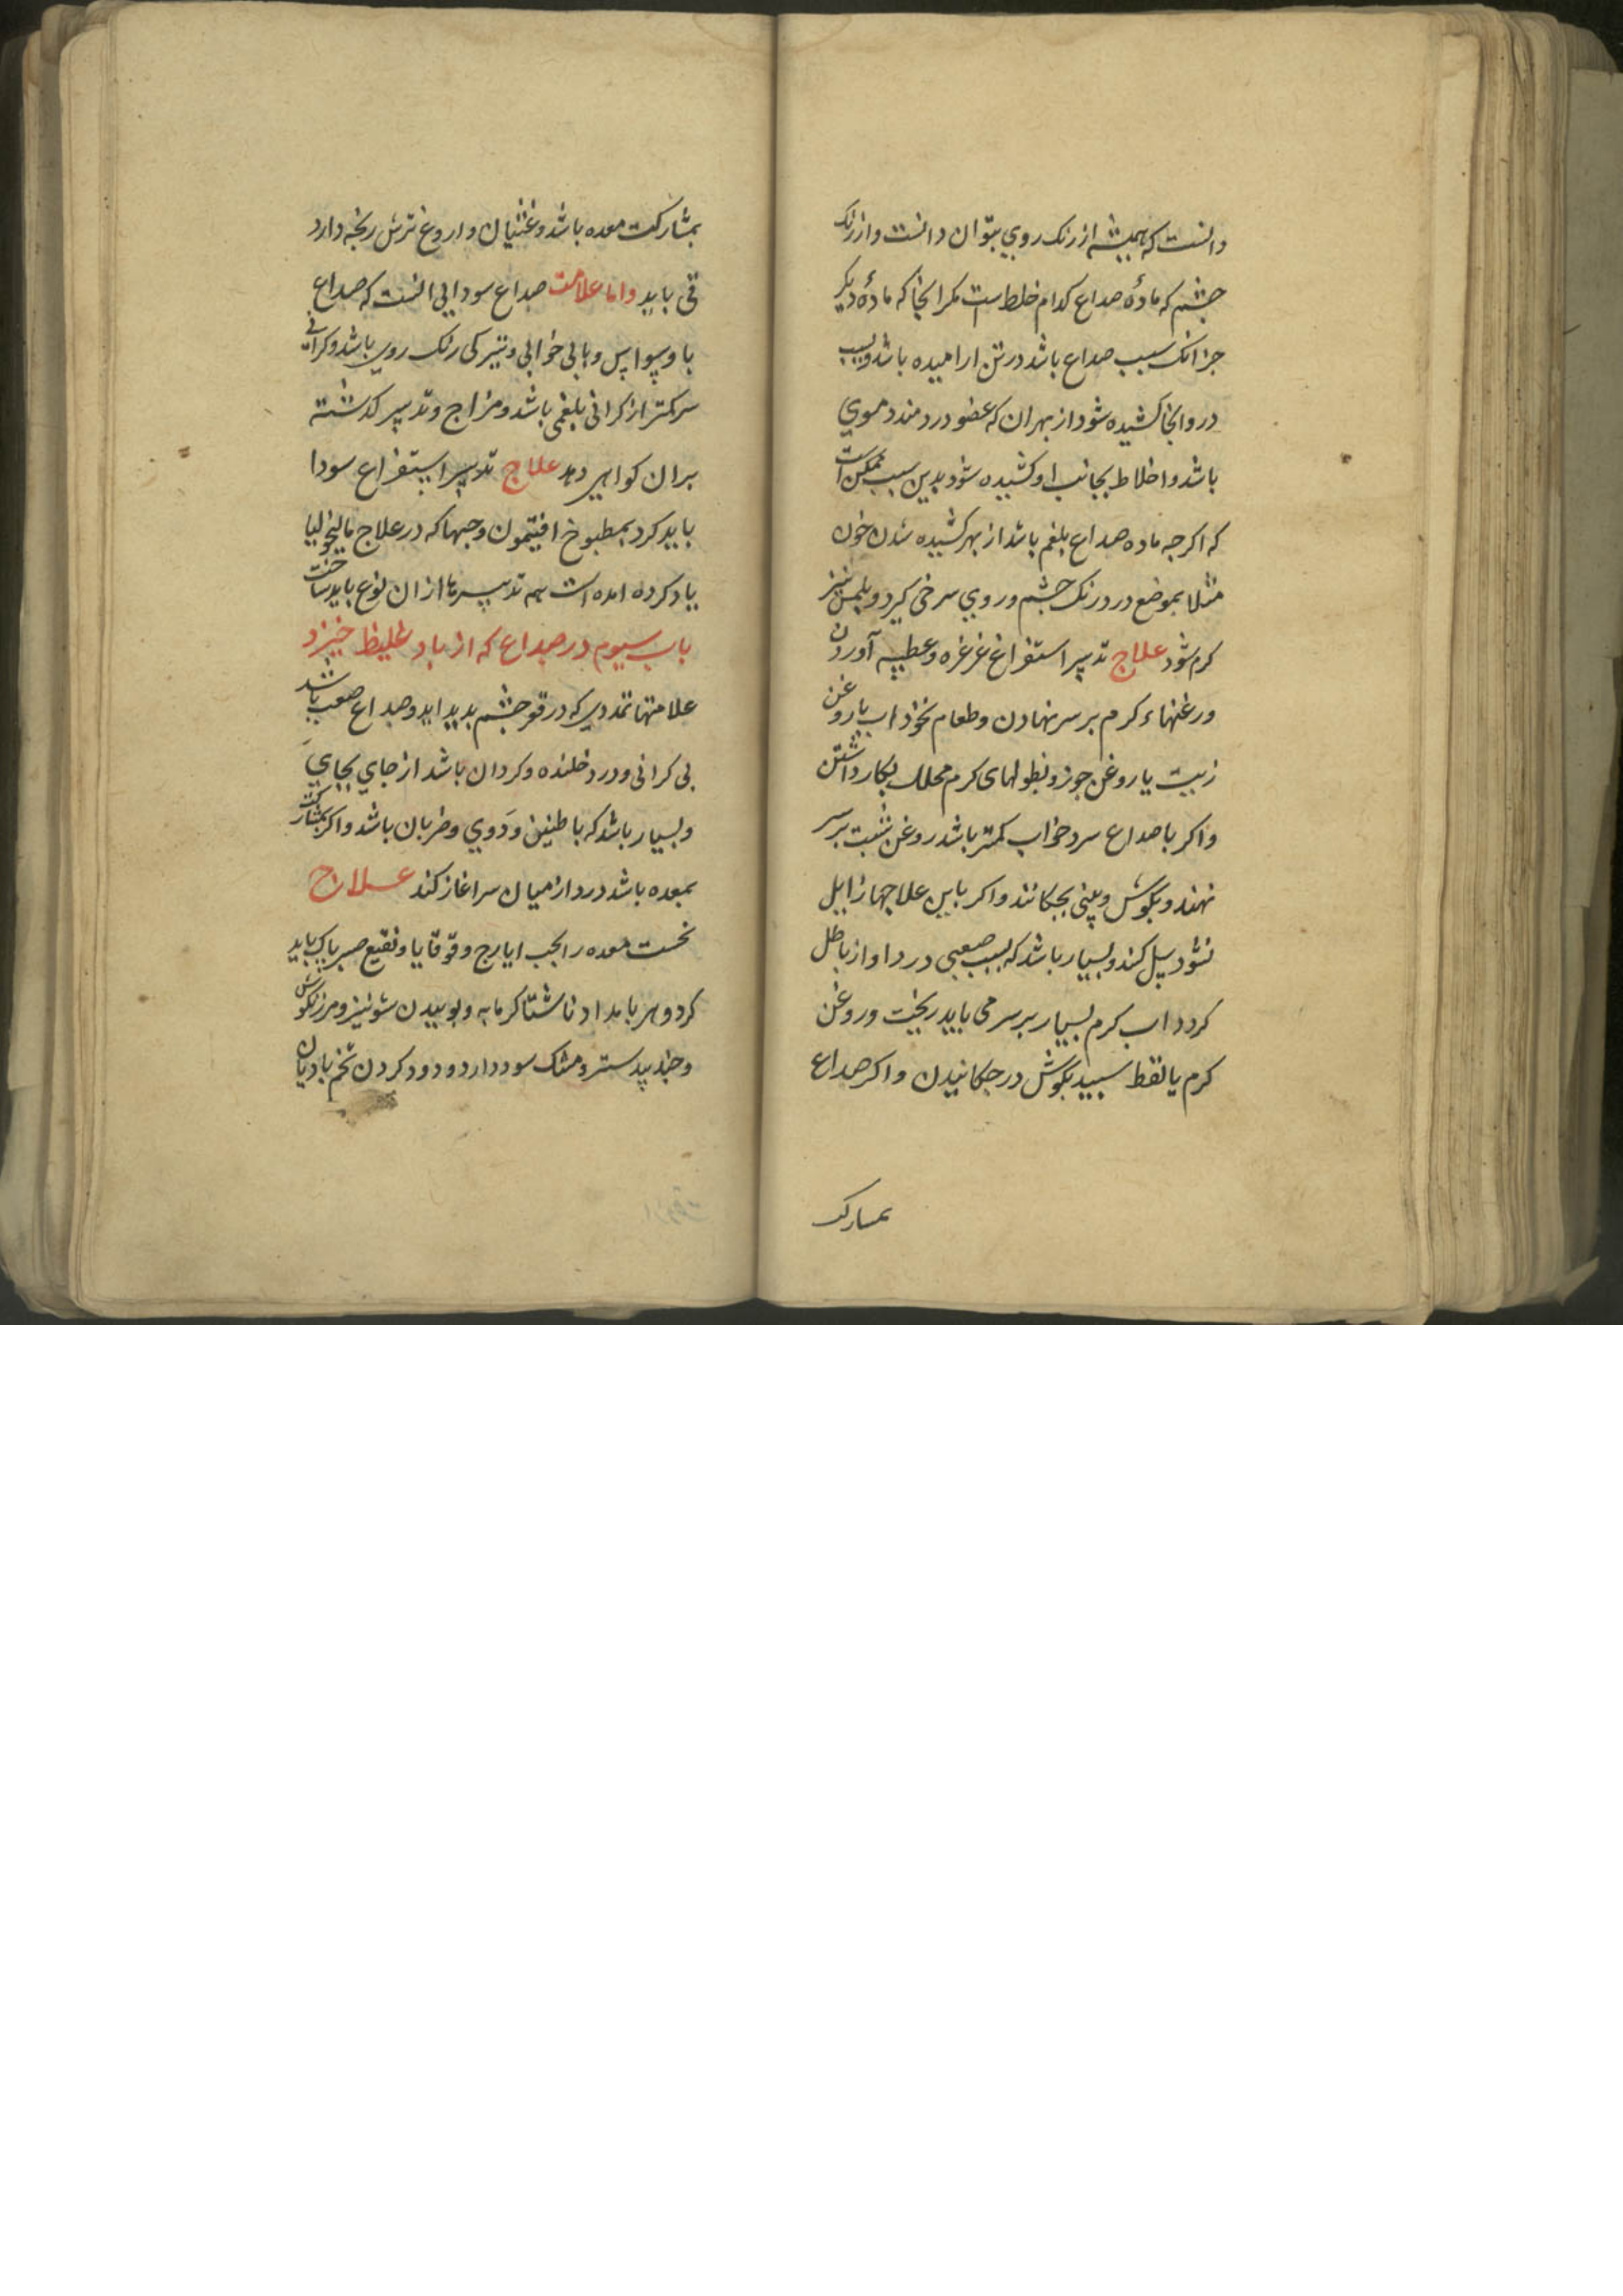 دانست که همیشه از رنک روي بتوان دانست واز رنک
چشم که مادۀ صداع کدام خلط است مکر انجا که مادۀ دیکر
جز انک سبب صداع باشد در تن ارامیده باشد وبسبب
درد انجا کشیده شود از بهر ان که عضو دردمند دموي
باشد واخلاط بجانب او کشیده شود بدین سبب ممکن است
که اکرچه ماده صداع بلغم باشد از بهر کشیده شدن خون
مثلا بموضع درد رنک چشم وروي سرخی کیرد وبلمس نیز
کرم شود علاج تدبیر استفراغ غرغره وعطسه آوردن
ورغنهاء کرم بر سر نهادن وطعام نخوداب با روغن
زیت یا روغن جوز ونطولهای کرم محلل بکار داشتن
واکر با صداع سرد خواب کمتر باشد روغن شبت بر سر
نهند وبکوش وبینی بچکانند واکر باین علاجها زایل
نشود سل کند وبسیار باشد که بسبب صعبی درد اواز باطل
کردد اب کرم بسیار بر سر می باید ریخت وروغن
کرم یا نفط سبید بکوش در چکانیدن واکر صداع
بمشارکت
بمشارکت معده باشد وغثیان واروغ ترش رنجه دارد
قی باید واما علامت صداع سودایی انست که صداع
با وسواس وبا بی خوابی وتیرکی رنک روی باشد وکرانی
سر کمتر از کرانی بلغمی باشد ومزاج وتدبیر کذشته
بران کواهی دهد علاج تدبیر استفراغ سودا
باید کرد بمطبوخ افتیمون وحبها که در علاج مالیخولیا
یاد کرده امده است همه تدبیرها از ان نوع باید ساخت
باب سیوم در صداع که از باد غلیظ خیزد
علامتها تمددی که در قعر چشم بدید اید وصداع صعب باشد
بی کرانی ودرد خلنده وکردان باشد از جاي بجاي
وبسیار باشد که با طنین ودَوي وضربان باشد واکر بمشارکت
بمعده باشد درد از میان سر اغاز کند علاج
نخست معده را بحب ایارج وقوقایا ونقیع صبر پاک باید
کرد وهر بامداد ناشتا کرمابه وبوییدن شونیز ومرزنکوش
وجند بیدستر ومشک سود دارد ودود کردن تخم بادیان